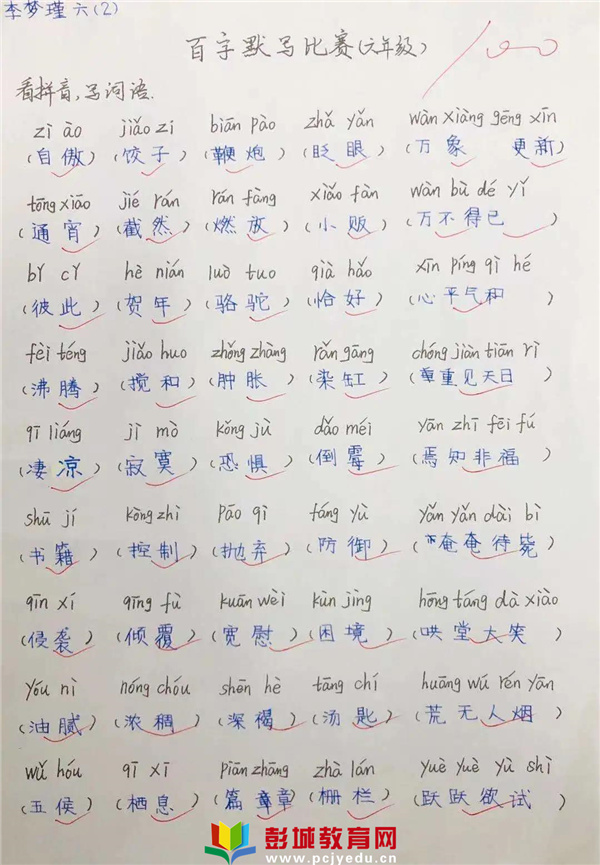 李梦瑾 六(2)
百字默写比赛(六年级)
100
看拼音,写词语.
zì ào jiǎo zi biān pào zhǎ yǎn wàn xiàng gēng xīn
(自傲) (饺子) (鞭炮) (眨眼) (万象 更新)
tōng xiāo jié rán rán fàng xiǎo fàn wàn bù dé yǐ
(通宵) (截然) (燃放) (小贩) (万不得已)
bǐ cǐ hè nián luò tuo qià hǎo xīn píng qì hé
(彼此) (贺年) (骆驼) (恰好) (心平气和)
fèi téng jiǎo huo zhǒng zhàng rǎn gāng chóng jiàn tiān rì
(沸腾) (搅和) (肿胀) (染缸) (重见天日)
qī liáng jì mò kǒng jù dǎo méi yān zhī fēi fú
(凄凉) (寂寞) (恐惧) (倒霉) (焉知非福)
shū jí kòng zhì pāo qì fáng yù yǎn yǎn dài bì
(书籍) (控制) (抛弃) (防御) (奄奄待毙)
qīn xí qīng fù kuān wèi kùn jìng hōng táng dà xiào
(侵袭) (倾覆) (宽慰) (困境) (哄堂大笑)
yóu nì nóng chóu shēn hè tāng chí huāng wú rén yān
(油腻) (浓稠) (深褐) (汤匙) (荒无人烟)
wǔ hóu qī xī piān zhāng zhà lán yuè yuè yù shì
(五侯) (栖息) (篇章) (栅栏) (跃跃欲试)
彭城教育网
www.pcjyedu.cn